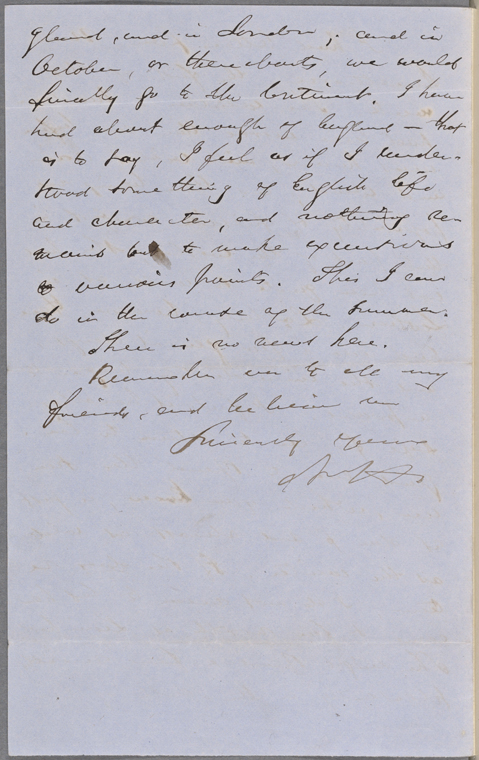 gland, and in London; and in
October, or thereabouts, we would
finally go to the Continent. I have
had about enough of England — that
is to say, I feel as if I under-
stood something of English life
and character, and nothing re-
mains but to make excursions
to various points. This I can
do in the course of the summer.
There is no news here.
Remember me to all my
friends, and believe me
Sincerely Yours